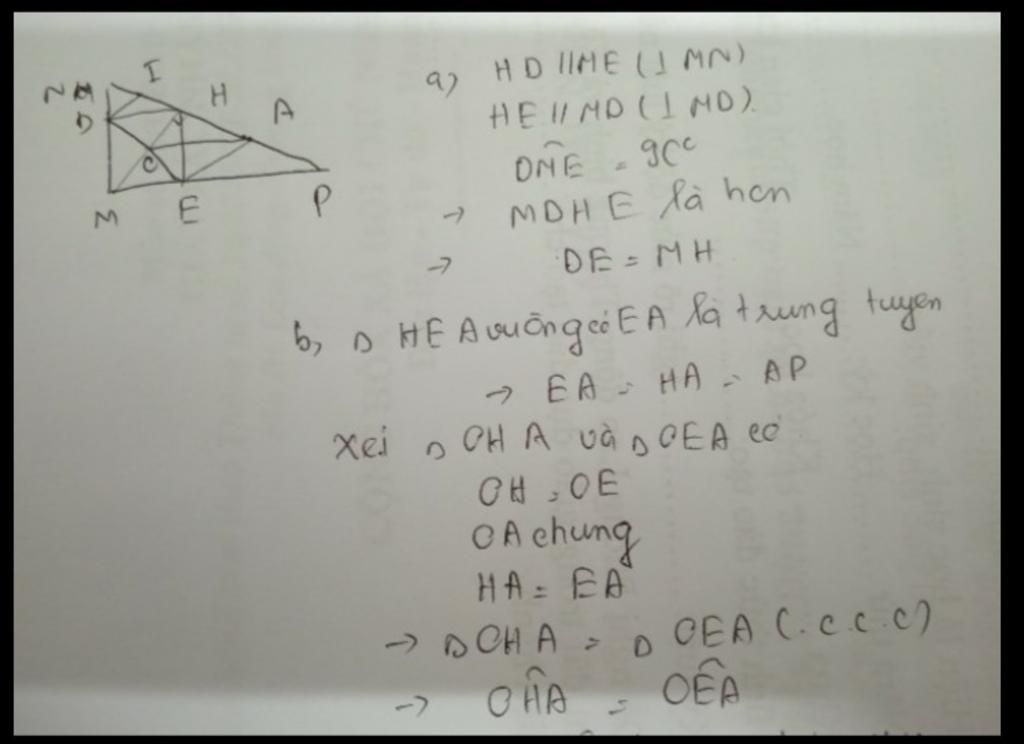 I
N
H
A
D
O
M
E
P
a) HD // ME (⊥ MN)
HE // MD (⊥ MD).
DM̂E = 90°
→ MDHE là hcn
→ DE = MH
b, Δ HEA vuông có EA là trung tuyen
→ EA = HA = AP
Xéi Δ OHA và Δ OEA có
OH = OE
OA chung
HA = EA
→ Δ OHA = Δ OEA (.c.c.c)
→ OĤA = OÊA